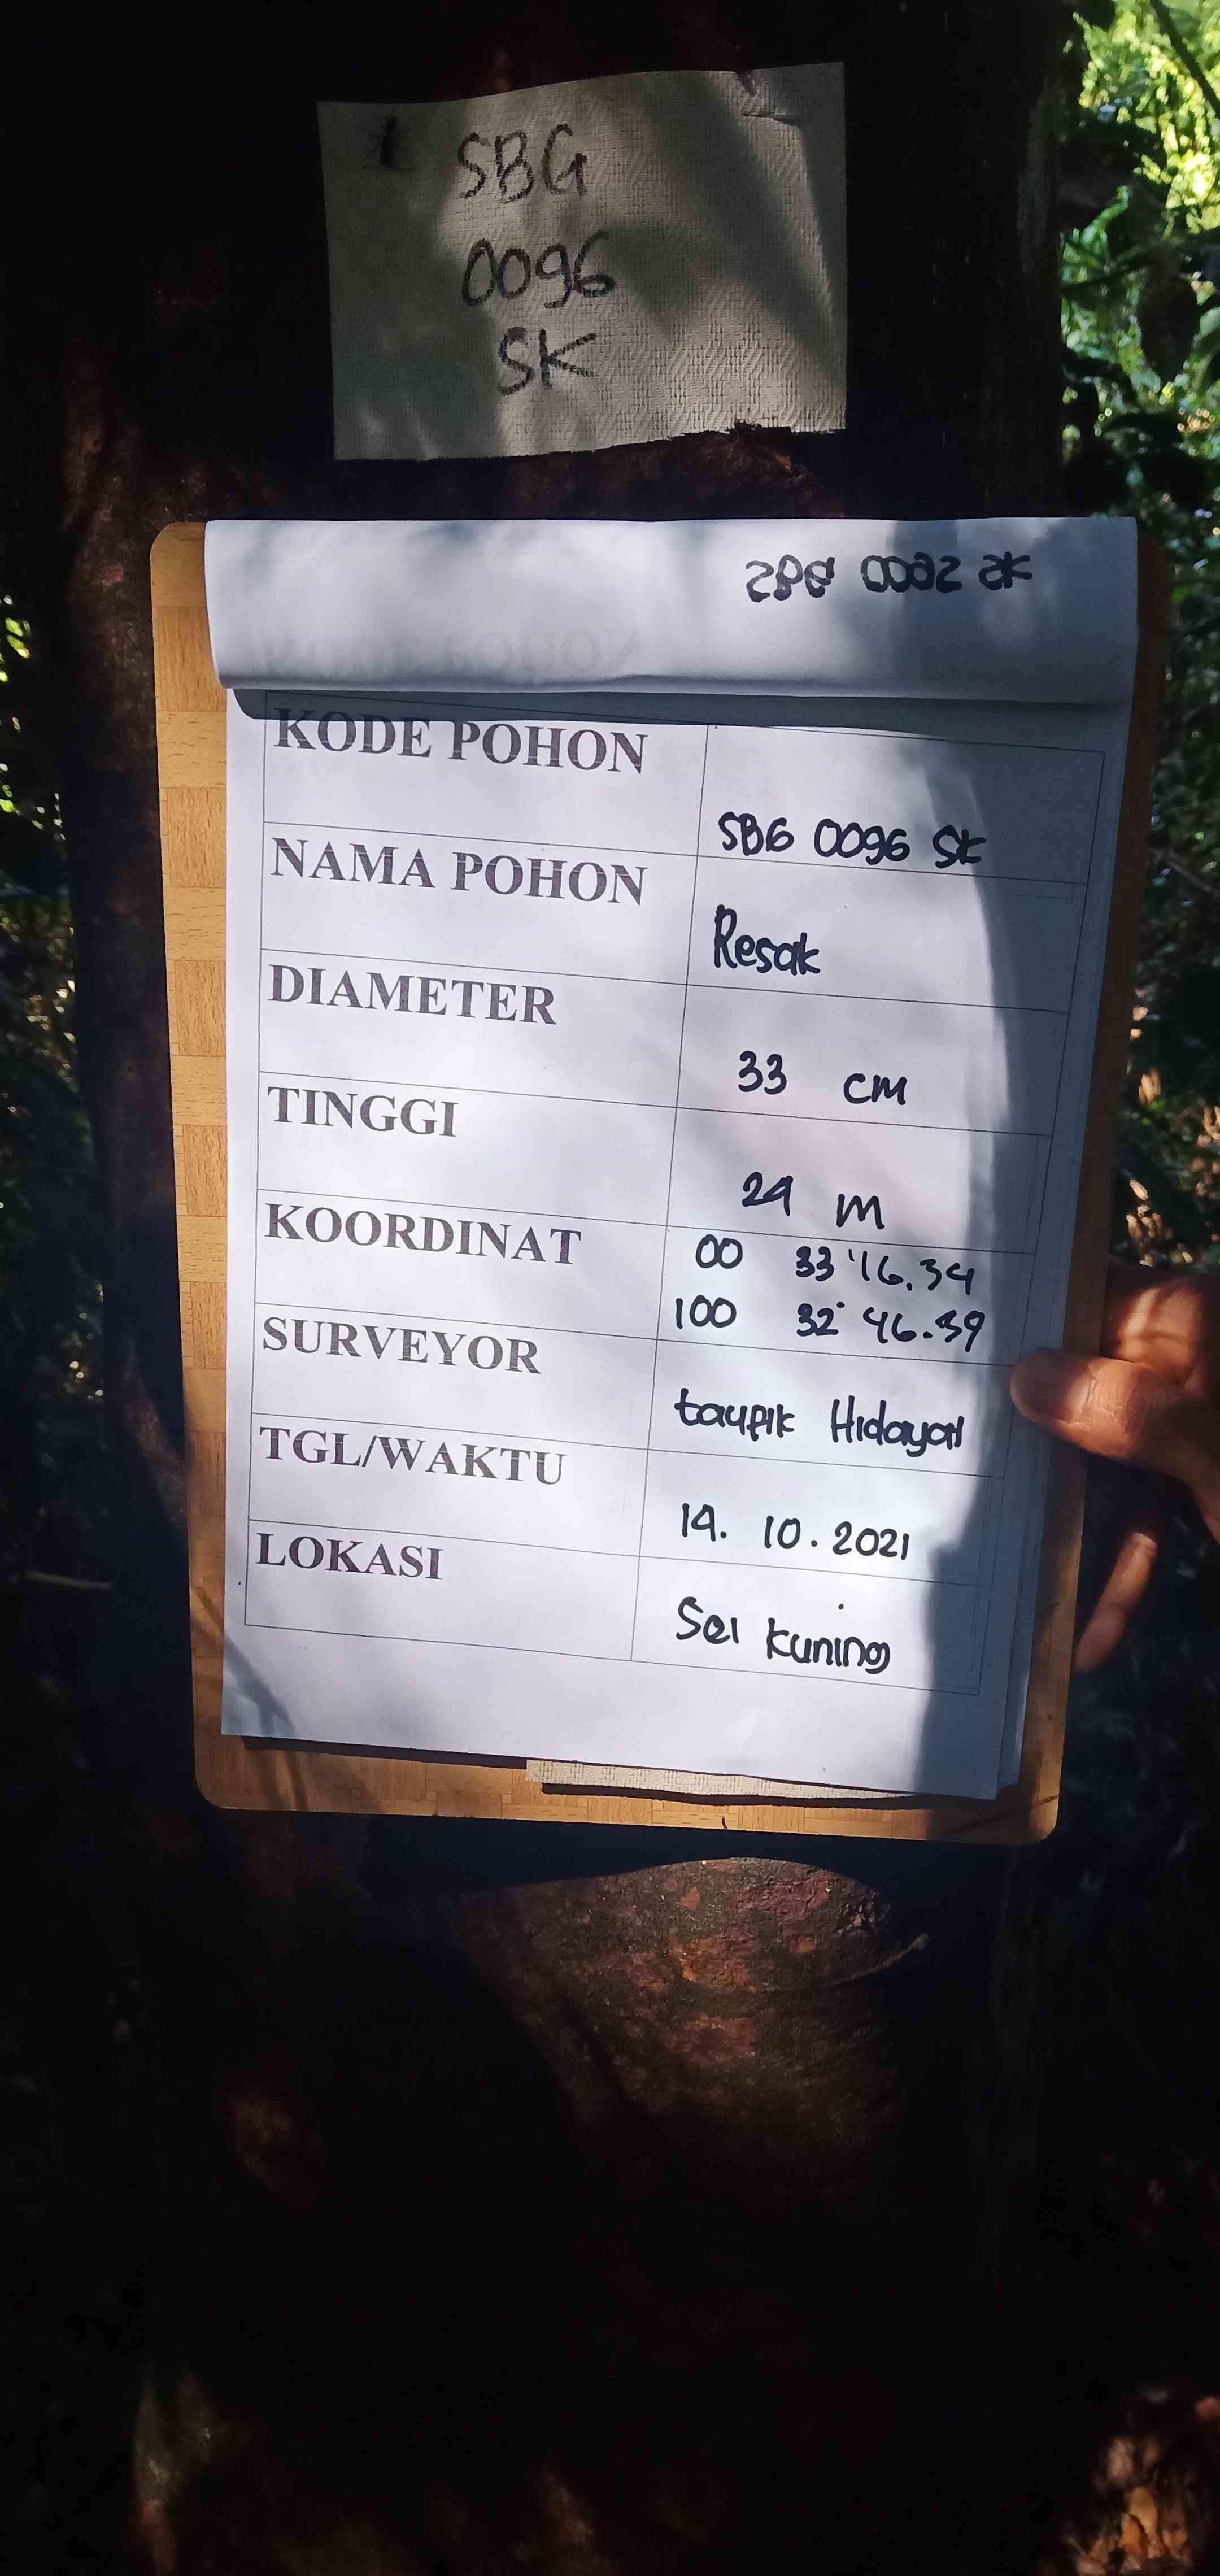 SBG
0096
SK
KODE POHON SBG 0096 SK
NAMA POHON Resak
DIAMETER 33 cm
TINGGI 24 m
KOORDINAT 00 33'16.34
100 32' 46.39
SURVEYOR taupik Hidayat
TGL/WAKTU 14. 10. 2021
LOKASI Sei Kuning